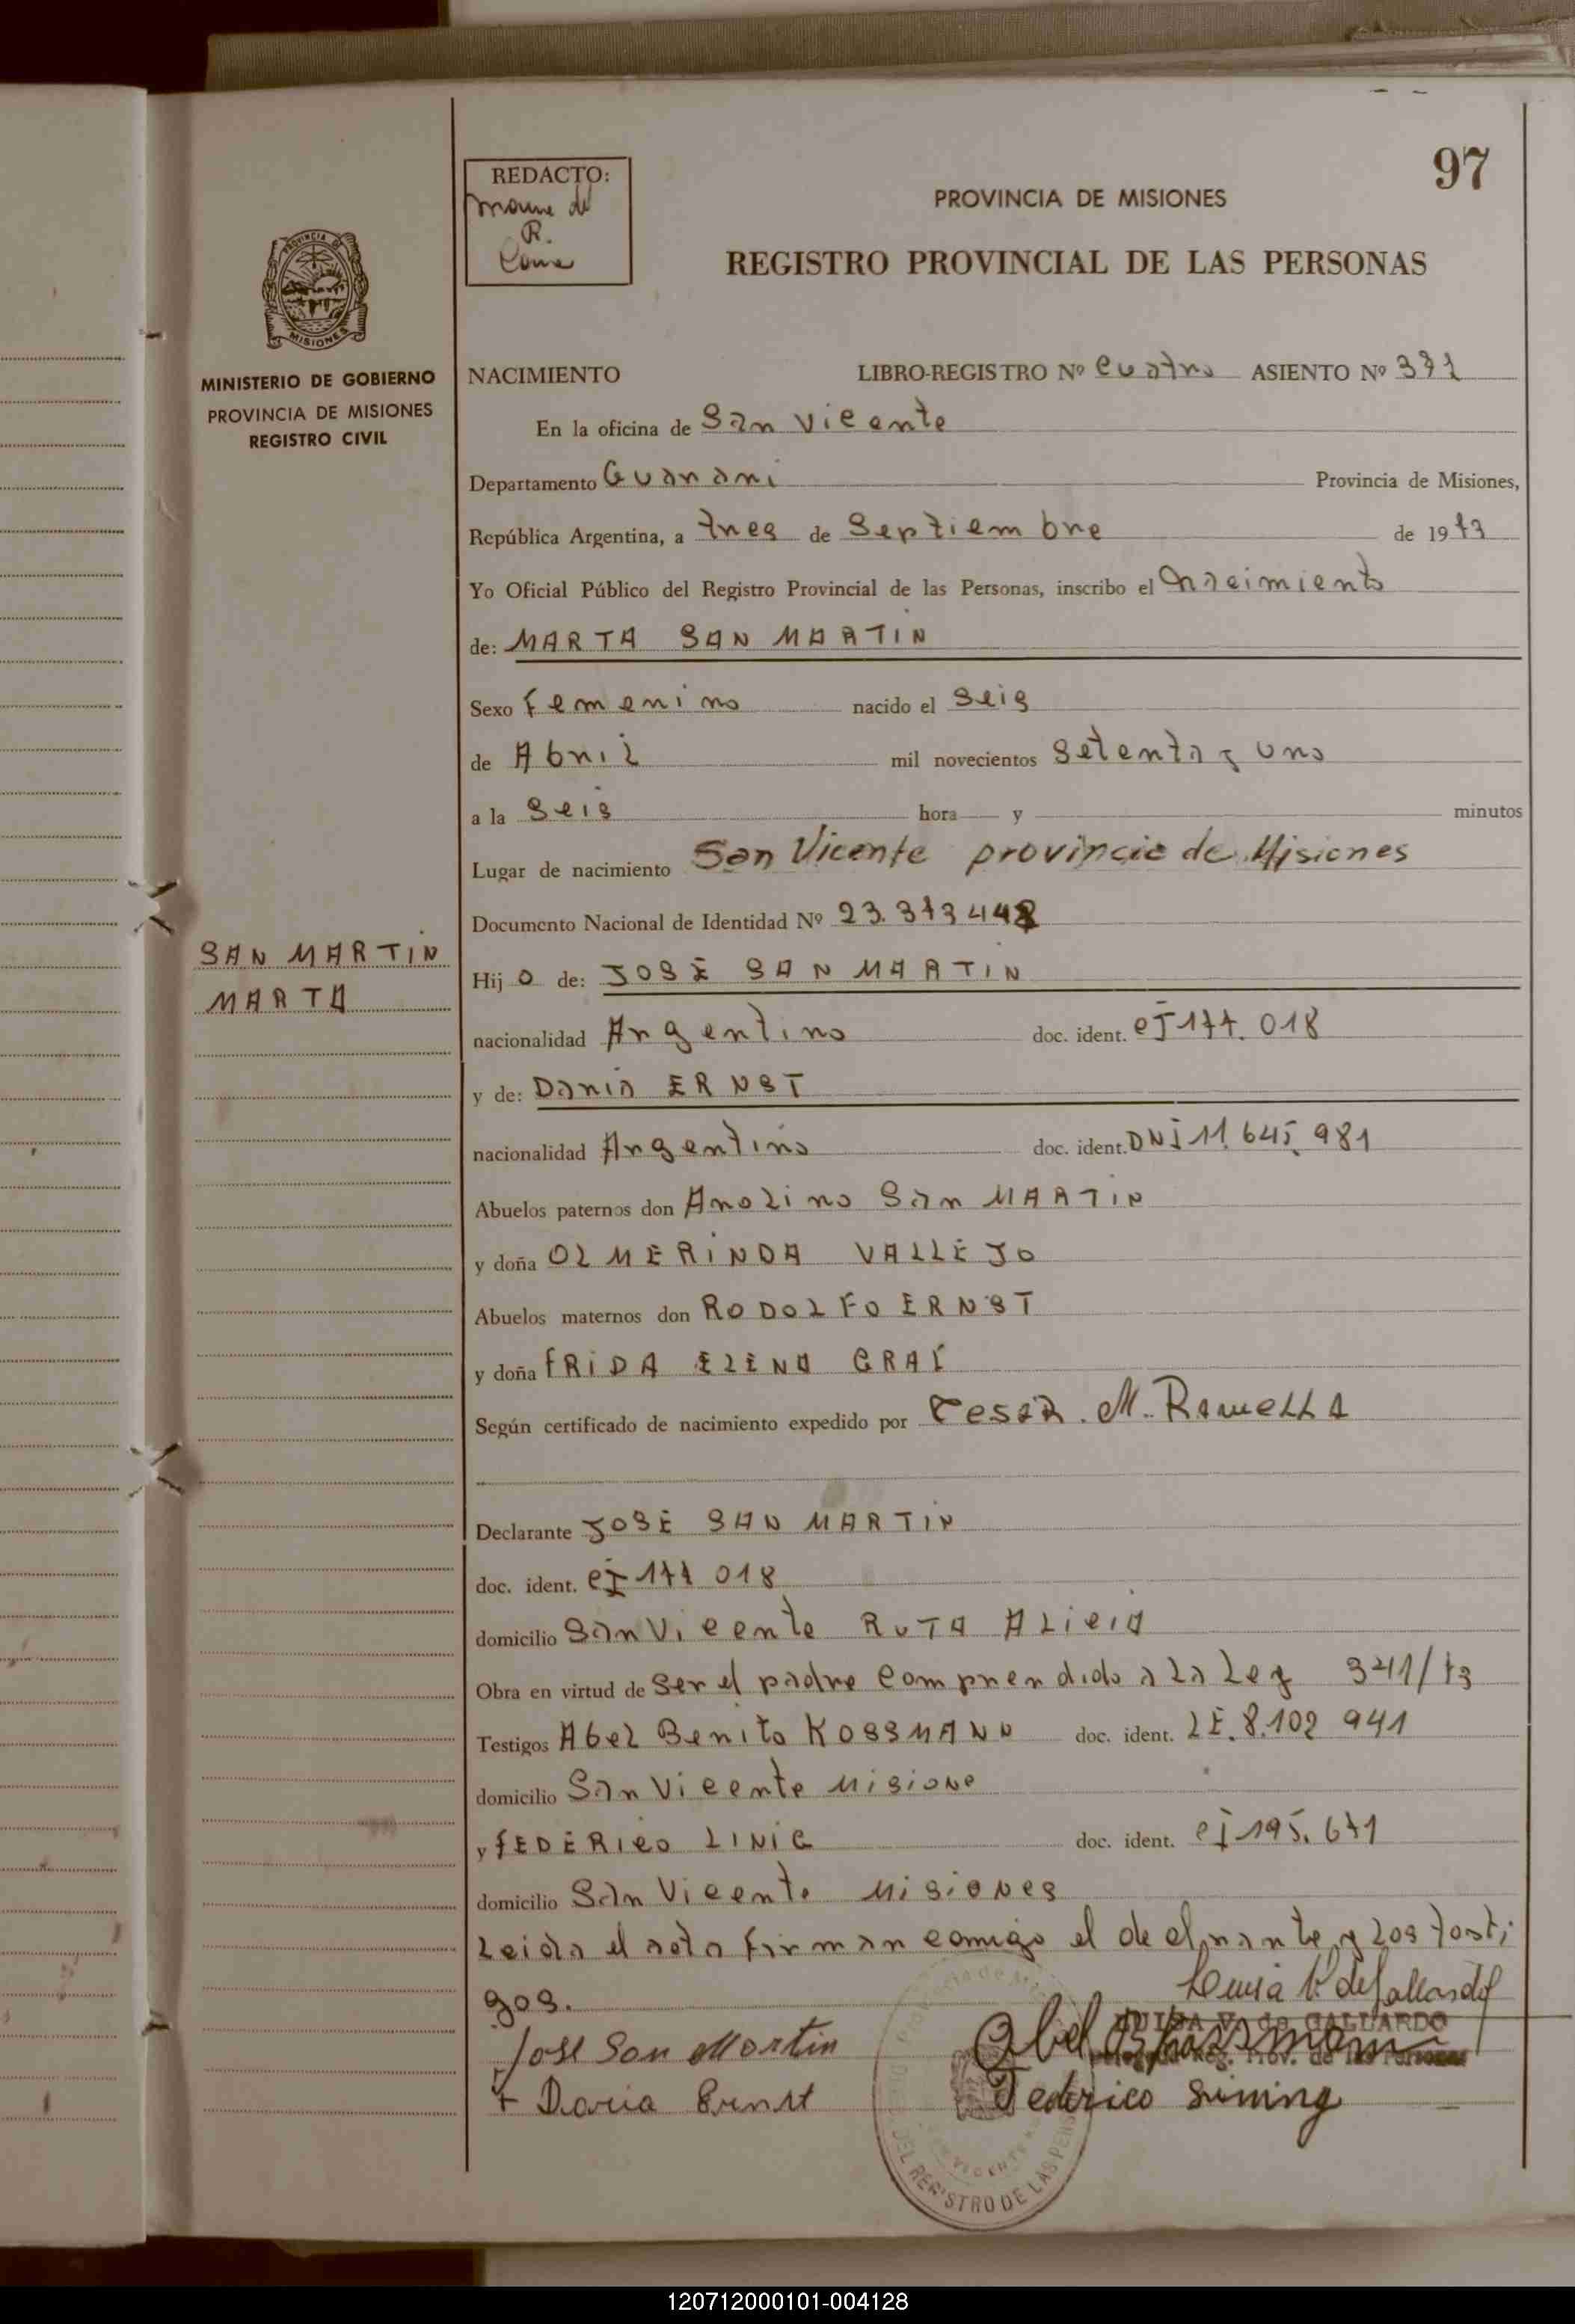 97
REDACTO:
R.
PROVINCIA DE MISIONES
REGISTRO PROVINCIAL DE LAS PERSONAS
MINISTERIO DE GOBIERNO
PROVINCIA DE MISIONES
REGISTRO CIVIL
NACIMIENTO LIBRO-REGISTRO Nº Cuatro ASIENTO Nº 371
En la oficina de San Vicente
Departamento Guarani Provincia de Misiones,
República Argentina, a tres de Septiembre de 1973
Yo Oficial Público del Registro Provincial de las Personas, inscribo el nacimiento
de: MARTA SAN MARTIN
Sexo Femenino nacido el Seis
de Abril mil novecientos Setenta y Uno
a la Seis hora y minutos
Lugar de nacimiento San Vicente provincia de Misiones
Documento Nacional de Identidad Nº 23.373448
SAN MARTIN
MARTA
Hij o de: JOSE SAN MARTIN
nacionalidad Argentino doc. ident. CI 177.018
y de: Daria ERNST
nacionalidad Argentino doc. ident. DNI 11.645.981
Abuelos paternos don Anolino San MARTIN
y doña OLMERINDA VALLEJO
Abuelos maternos don RODOLFO ERNST
y doña FRIDA ELENA GRAF
Según certificado de nacimiento expedido por Cesar. M. Ramella
Declarante JOSE SAN MARTIN
doc. ident. CI 177 018
domicilio San Vicente RUTA ALICIA
Obra en virtud de Ser el padre Comprendido a La Ley 341/73
Testigos Abel Benito KOSSMANN doc. ident. LE. 8.102 941
domicilio San Vicente Misione
y FEDERICO LINIG doc. ident. CI 195.671
domicilio San Vicente Misiones
Leida el acta firman comigo el declarante y Los testi
gos.
Luisa V. de Gallardo
LUISA V. de GALLARDO
Delegada Reg. Prov. de las Personas
José San Martin Abel B Kossmann
+ Daria Ernst Federico Lining
DEL REGISTRO DE LAS PERS
120712000101-004128